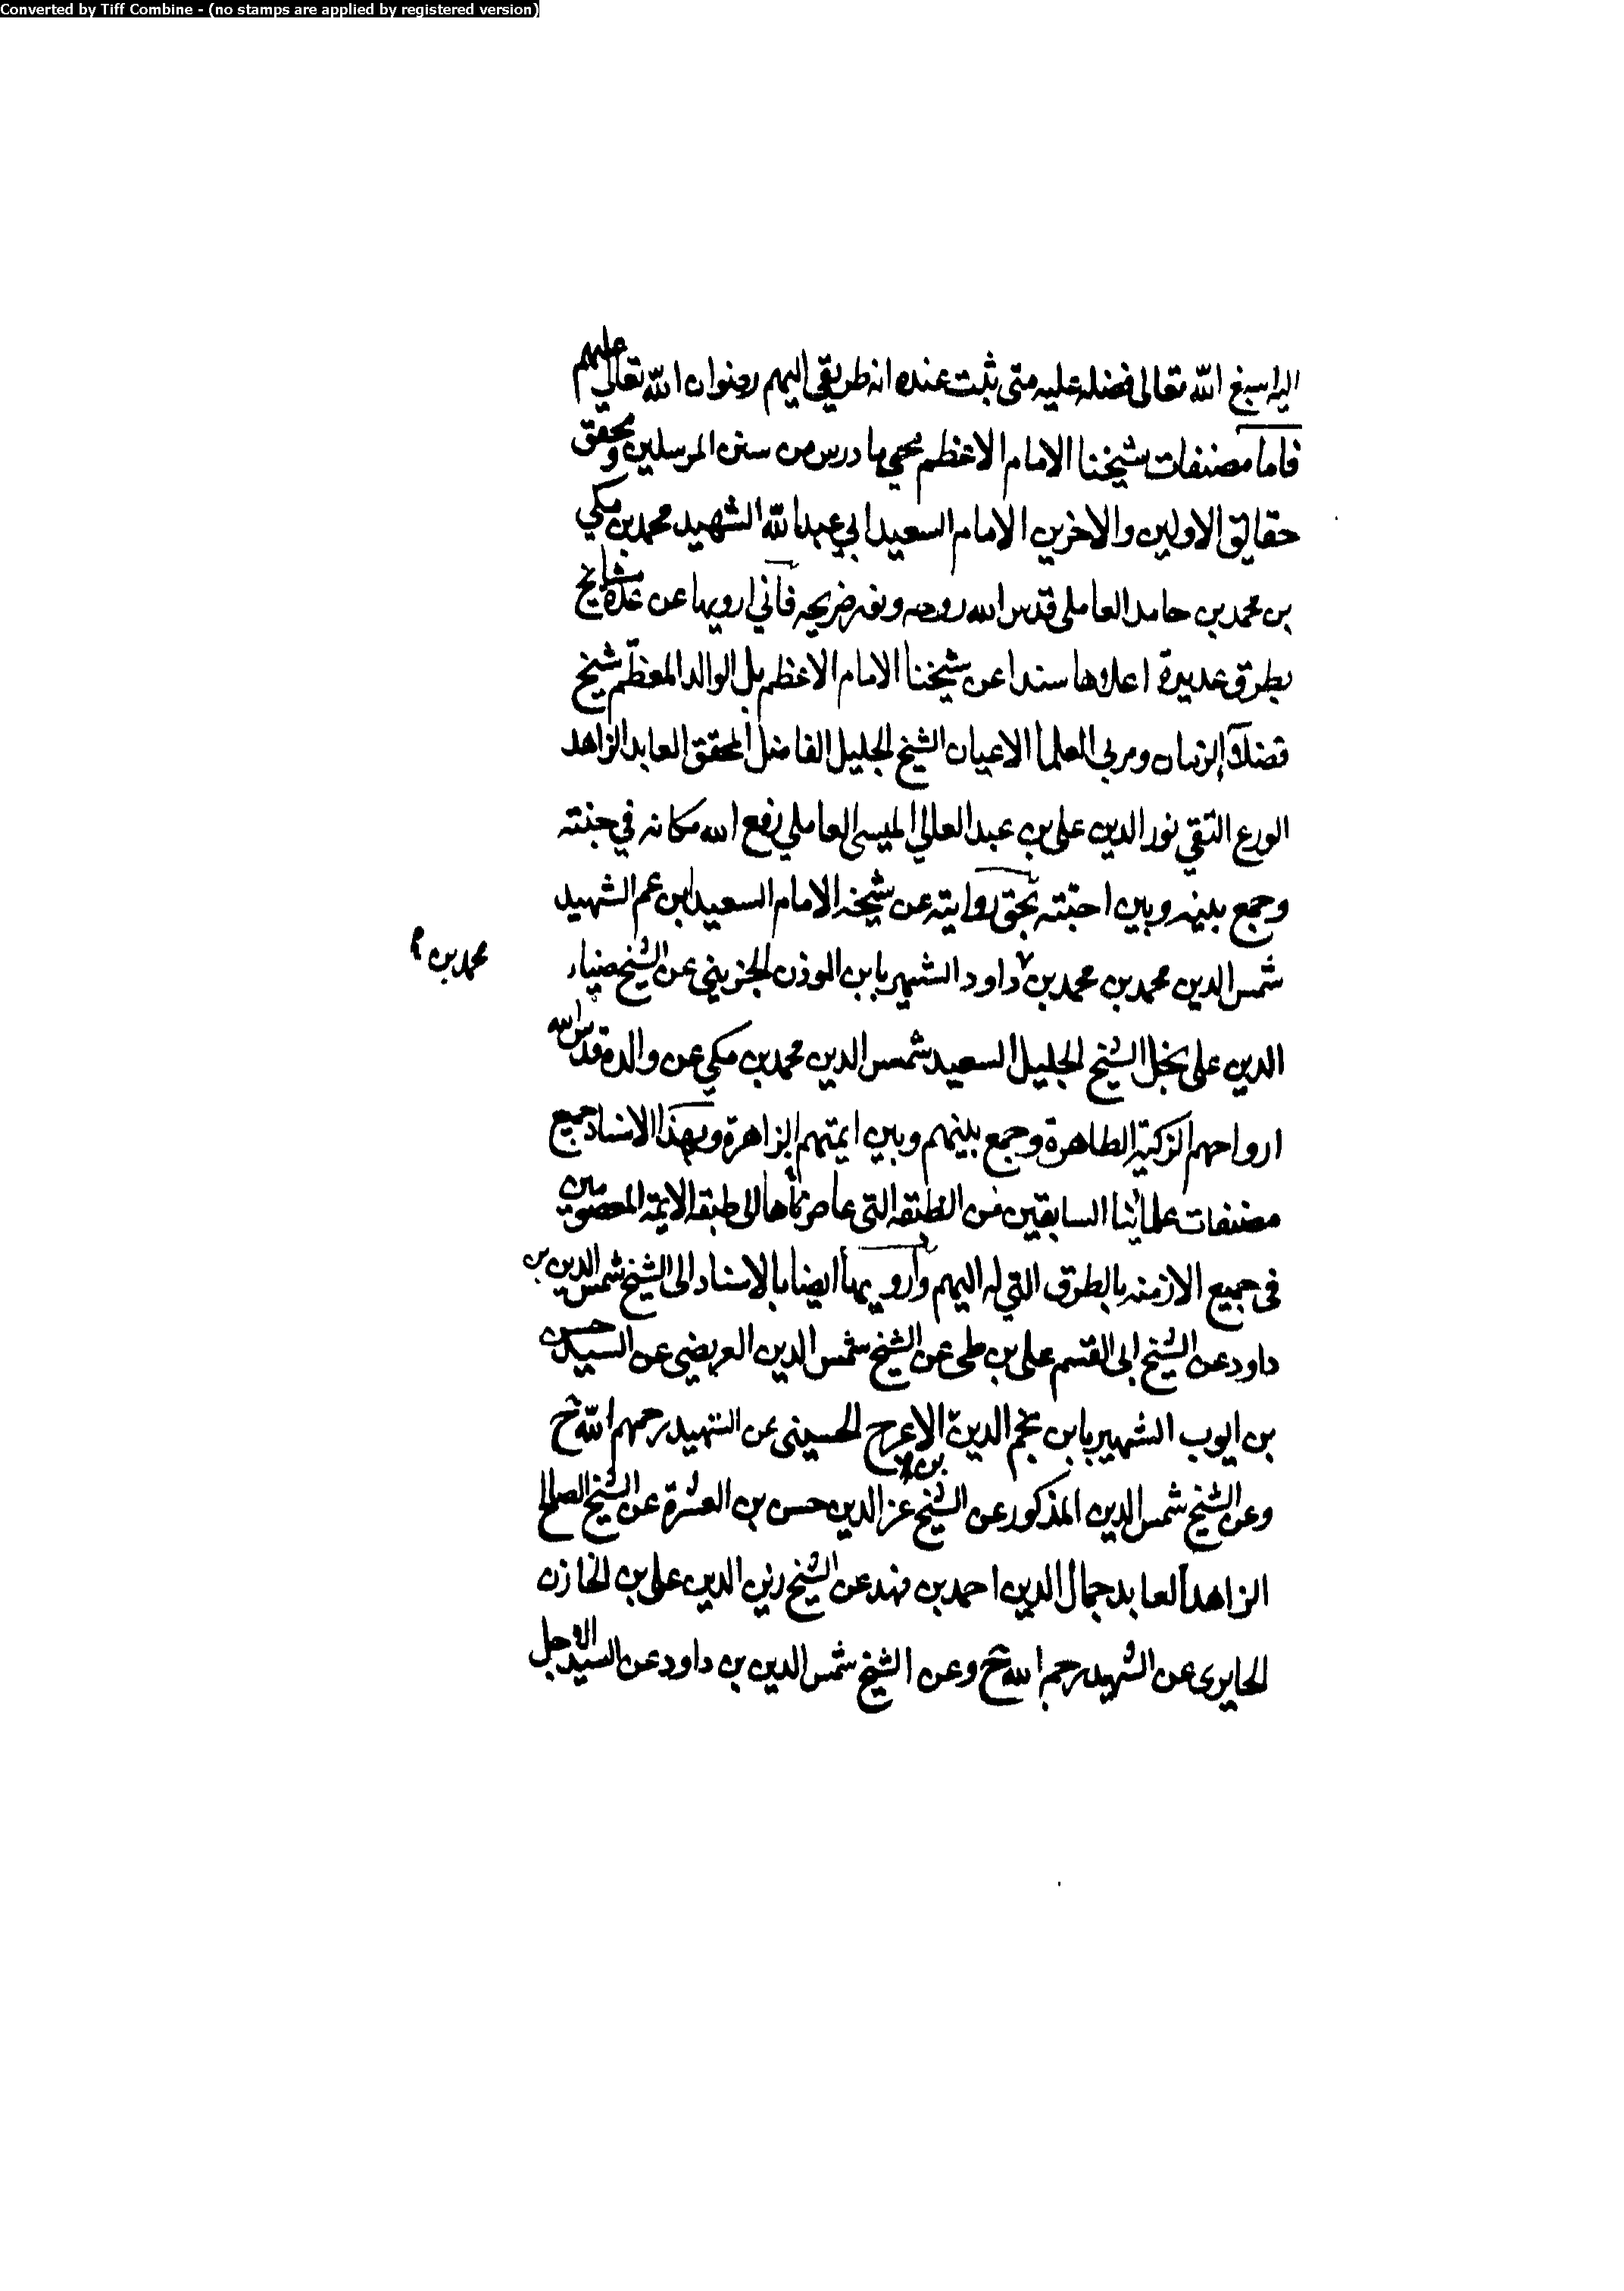 Converted by Tiff Combine - (no stamps are applied by registered version)
اليه اسبغ الله تعالى فضله عليه متى ثبت عنده انه طريقي اليهم رضوان الله تعالى عليهم
فاما مصنفات شيخنا الامام الاعظم محيي ما درس من سنن المرسلين ومحقق
حقايق الاولين والاخرين الامام السعيد ابي عبد الله الشهيد محمد بن مكي
بن محمد بن حامد العاملي قدس الله روحه ونور ضريحه فاني ارويها عن عدة مشايخ
بطرق عديدة اعلاها سندا عن شيخنا الامام الاعظم بل الوالد المعظم شيخ
فضلآ الزمان ومربي العلمآ الاعيان الشيخ الجليل الفاضل المحقق العابد الزاهد
الورع التقي نور الدين علي بن عبد العالي الميسي العاملي رفع الله مكانه في جنته
وجمع بينه وبين احبته بحق روايته عن شيخه الامام السعيد ابن عم الشهيد
شمس الدين محمد بن محمد بن داود الشهير بابن الموذن الجزيني عن الشيخ ضياء
محمد بن
الدين علي نجل الشيخ الجليل السعيد شمس الدين محمد بن مكي عن والده قدس الله
ارواحهم الزكية الطاهرة وجمع بينهم وبين ايمتهم الزاهرة وبهذا الاسناد جميع
مصنفات علمائنا السابقين من الطبقه التي عاصرناها الى طبقة الايمة المعصومين
في جميع الازمنه بالطرق التي له اليهم وارويها ايضا بالاسناد الى الشيخ شمس الدين بن
داود عن الشيخ ابي القسم علي بن طي عن الشيخ شمس الدين العريضي عن السيد حسن
بن ايوب الشهير بابن نجم الدين الاعرج الحسيني عن الشهيد رحمهم الله ح
بن
وعن الشيخ شمس الدين المذكور عن الشيخ عز الدين حسن بن العشرة عن الشيخ الصالح
الزاهد العابد جمال الدين احمد بن فهد عن الشيخ زين الدين علي بن الخازن
الحايرى عن الشهيد رحمهم الله ح وعن الشيخ شمس الدين بن داود عن السيد الاجل